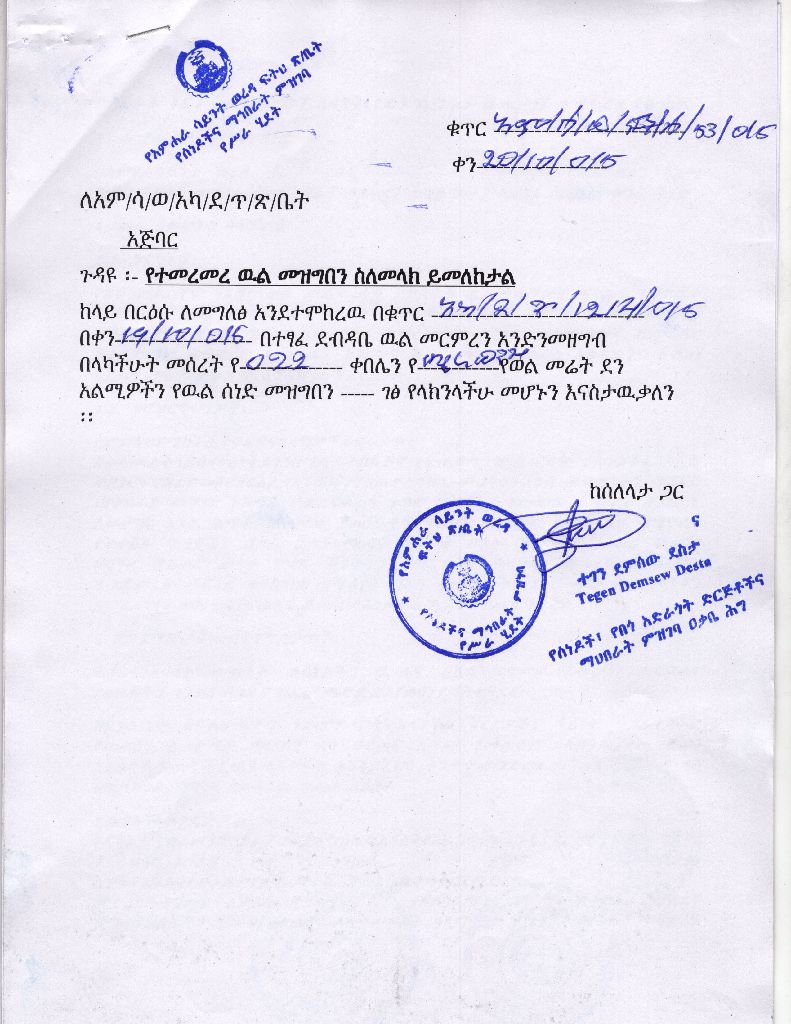 የአምሐራ ሳይንት ወረዳ ፍትህ ጽ/ቤት
የሰነዶችና ማኅበራት ምዝገባ
የሥራ ሂደት
ቁጥር /53/015
ቀን 20/10/015
ለአም/ሳ/ወ/አካ/ደ/ጥ/ጽ/ቤት
አጅባር
ጉዳዩ ፡- የተመረመረ ዉል መዝግበን ስለመላክ ይመለከታል
ከላይ በርዕሱ ለመግለፅ እንደተሞከረዉ በቁጥር /015
በቀን 19/10/015 በተፃፈ ደብዳቤ ዉል መርምረን እንድንመዘግብ
በላካችሁት መሰረት የ 022 ቀበሌን የ የወል መሬት ደን
አልሚዎችን የዉል ሰነድ መዝግበን ----- ገፅ የላክንላችሁ መሆኑን እናስታዉቃለን
፡፡
ከሰለላታ ጋር
የአምሐራ ሳይንት ወረዳ
ፍትህ ጽ/ቤት
የሰነዶችና ማኅበራት
የሥራ ሂደት
ተገን ደምሰው ደስታ
Tegen Demsew Desta
የሰነዶች፣ የበጎ አድራጎት ድርጅቶችና
ማህበራት ምዝገባ ዐቃቤ ሕግ